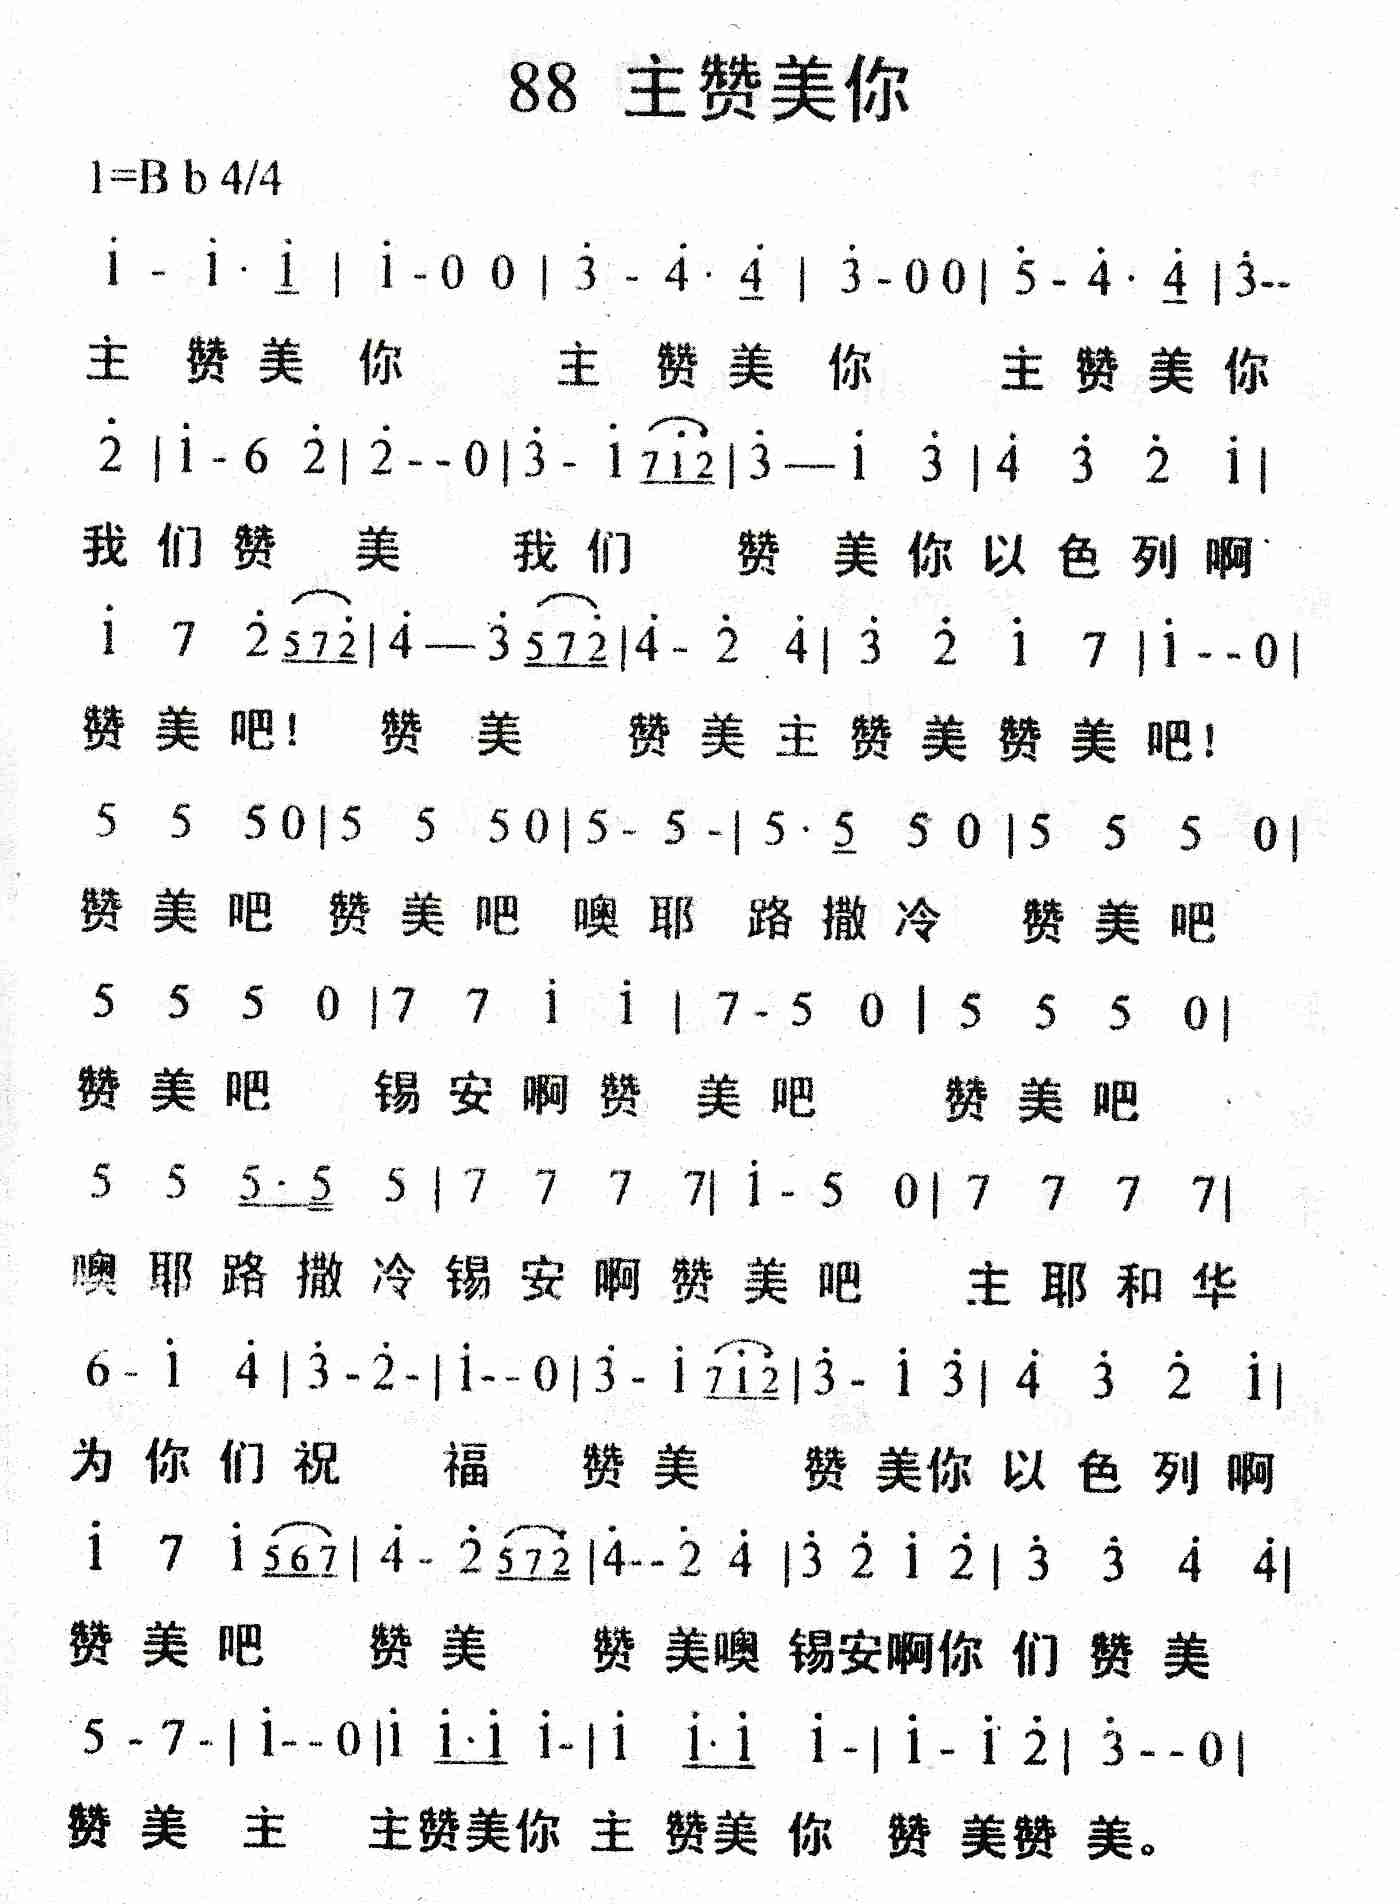 88 主赞美你
1=B b 4/4
i̇ - i̇ · i̇ | i̇ - 0 0 | 3̇ - 4̇ · 4̇ | 3̇ - 0 0 | 5̇ - 4̇ · 4̇ | 3̇ - -
主 赞 美 你 主 赞 美 你 主 赞 美 你
2̇ | i̇ - 6 2̇ | 2̇ - - 0 | 3̇ - i̇ 7 i̇ 2̇ | 3̇ — i̇ 3̇ | 4̇ 3̇ 2̇ i̇ |
我 们 赞 美 我 们 赞 美 你 以 色 列 啊
i̇ 7 2̇ 5 7 2̇ | 4̇ — 3̇ 5 7 2̇ | 4̇ - 2̇ 4̇ | 3̇ 2̇ i̇ 7 | i̇ - - 0 |
赞 美 吧！ 赞 美 赞 美 主 赞 美 赞 美 吧！
5 5 5 0 | 5 5 5 0 | 5 - 5 - | 5 · 5 5 0 | 5 5 5 0 |
赞 美 吧 赞 美 吧 噢 耶 路 撒 冷 赞 美 吧
5 5 5 0 | 7 7 i̇ i̇ | 7 - 5 0 | 5 5 5 0 |
赞 美 吧 锡 安 啊 赞 美 吧 赞 美 吧
5 5 5 · 5 5 | 7 7 7 7 | i̇ - 5 0 | 7 7 7 7 |
噢 耶 路 撒 冷 锡 安 啊 赞 美 吧 主 耶 和 华
6 - i̇ 4̇ | 3̇ - 2̇ - | i̇ - - 0 | 3̇ - i̇ 7 i̇ 2̇ | 3̇ - i̇ 3̇ | 4̇ 3̇ 2̇ i̇ |
为 你 们 祝 福 赞 美 赞 美 你 以 色 列 啊
i̇ 7 i̇ 5 6 7 | 4̇ - 2̇ 5 7 2̇ | 4̇ - - 2̇ 4̇ | 3̇ 2̇ i̇ 2̇ | 3̇ 3̇ 4̇ 4̇ |
赞 美 吧 赞 美 赞 美 噢 锡 安 啊 你 们 赞 美
5 - 7 - | i̇ - - 0 | i̇ i̇ · i̇ i̇ - | i̇ i̇ · i̇ i̇ - | i̇ - i̇ 2̇ | 3̇ - - 0 |
赞 美 主 主 赞 美 你 主 赞 美 你 赞 美 赞 美。